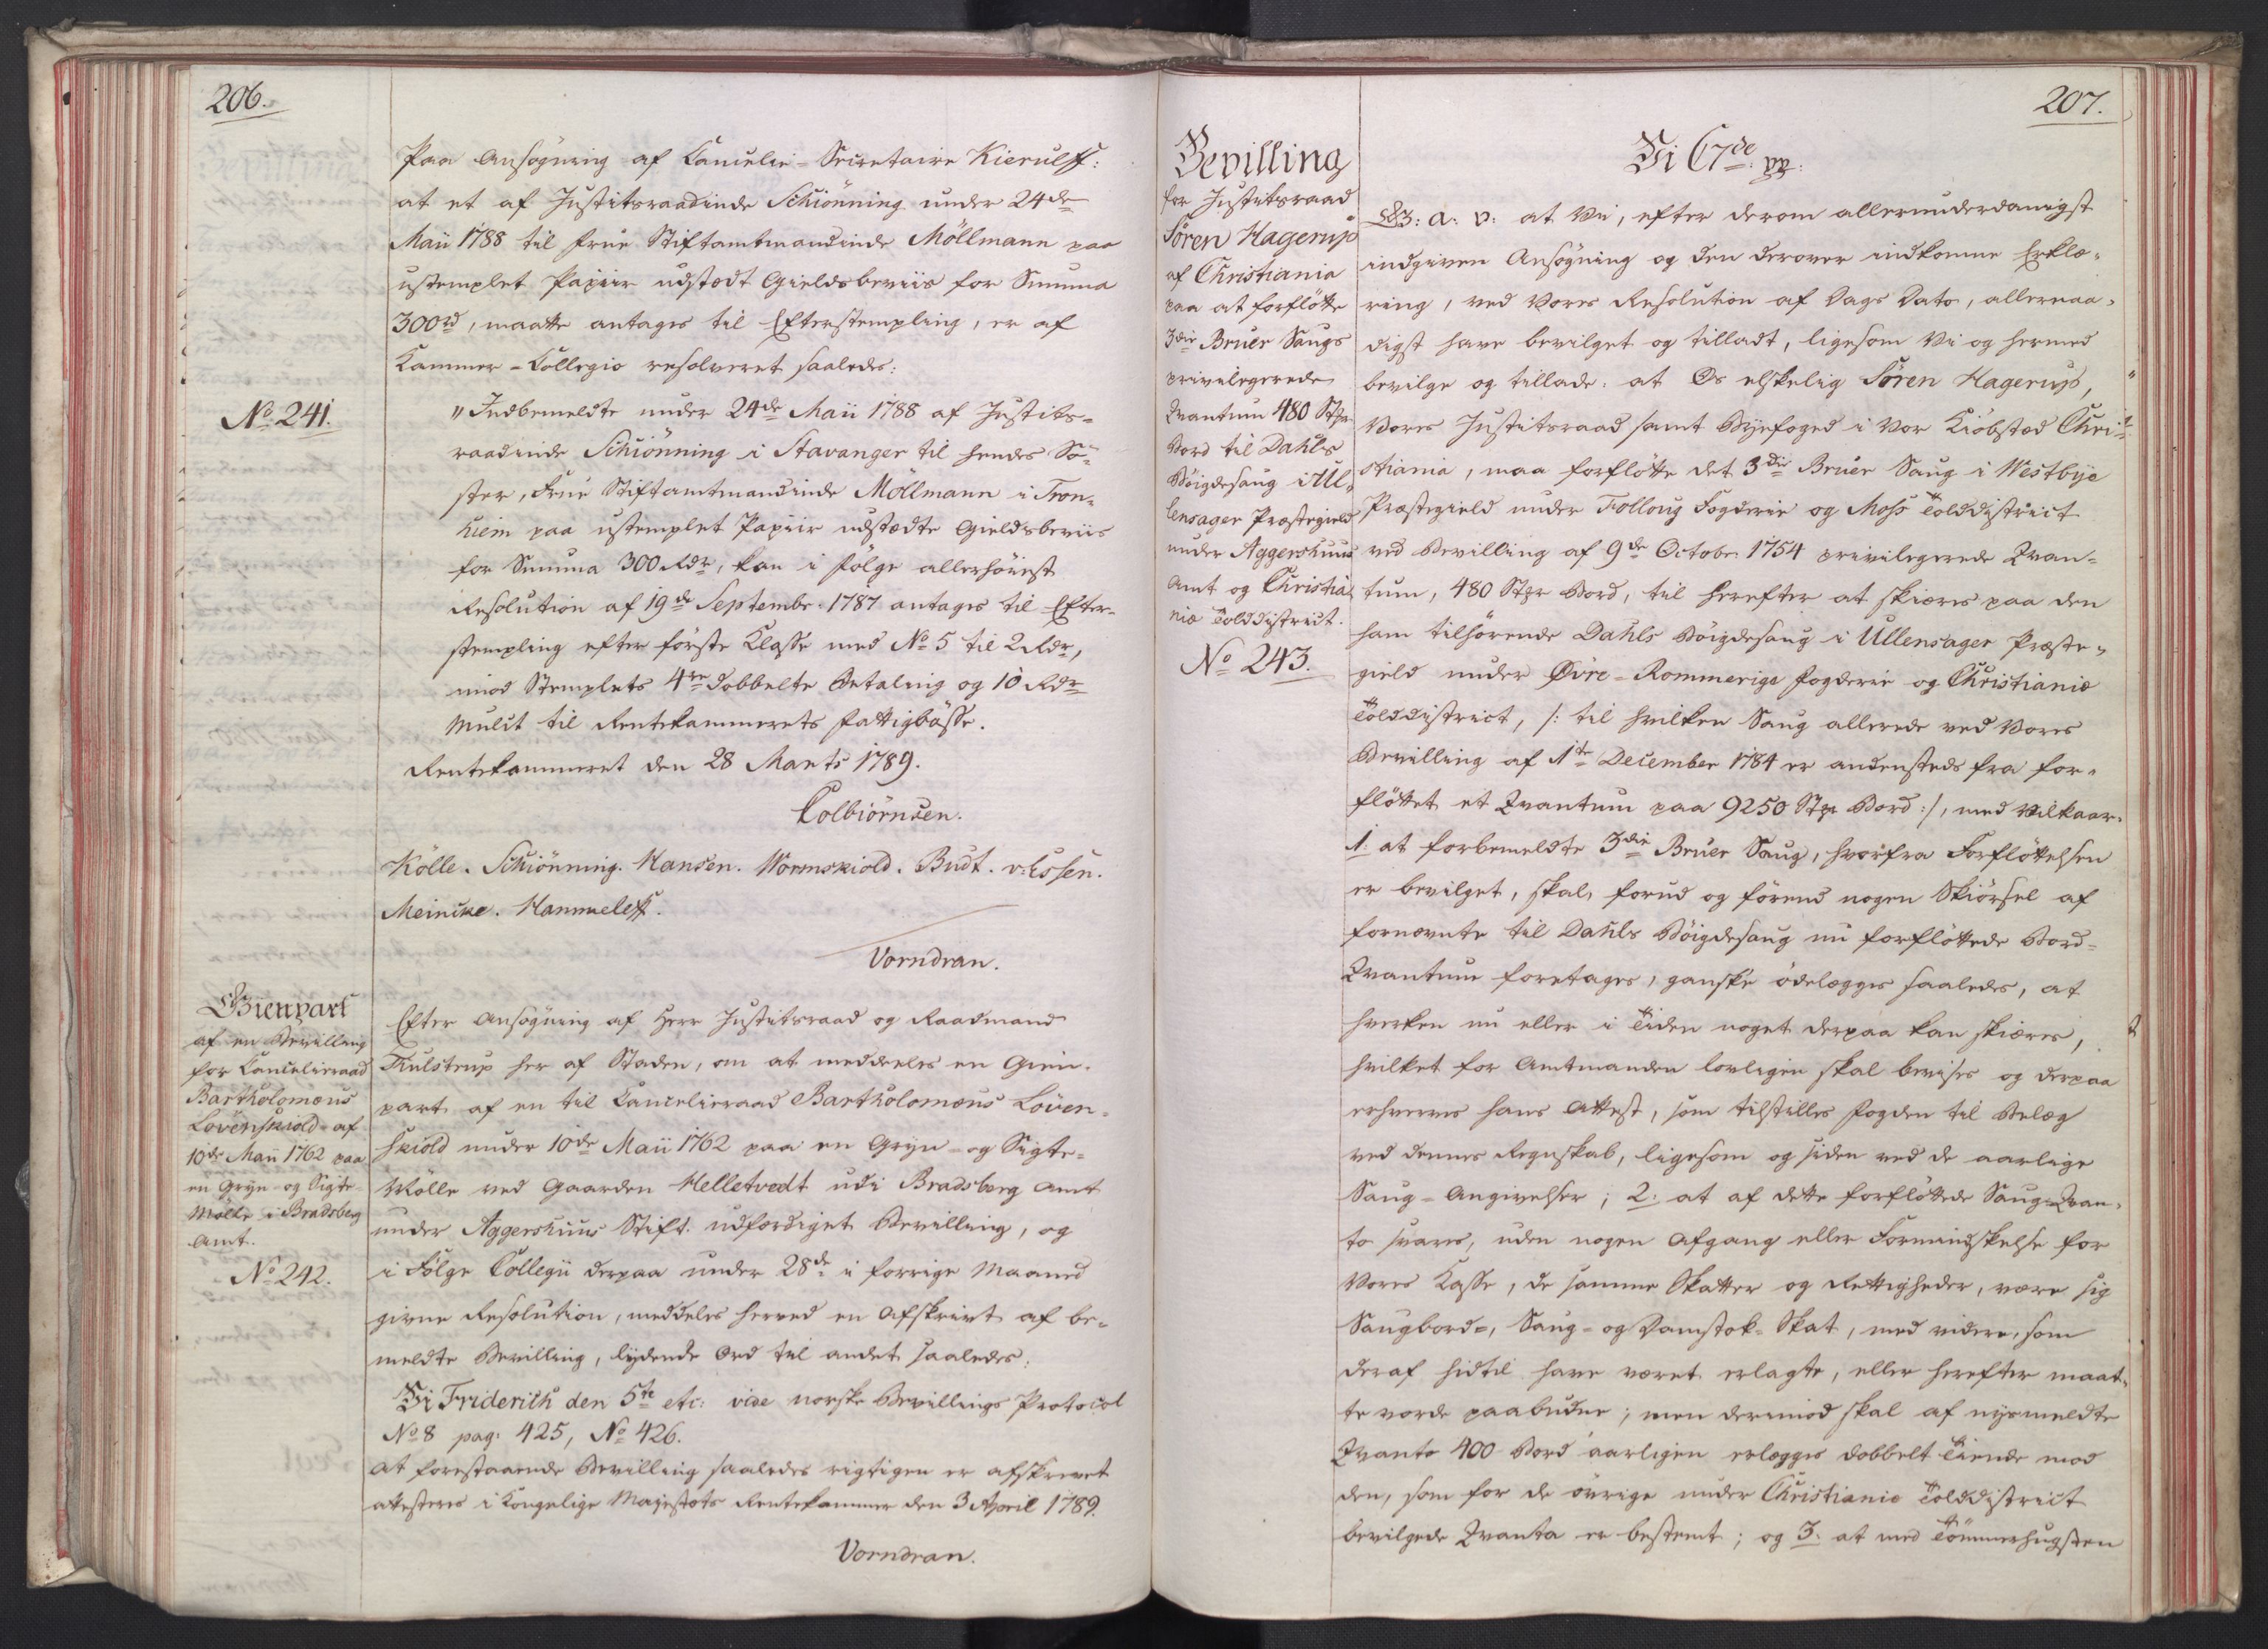 206.
Paa Ansøgning af Cancelie-Secretaire Kierulff:
at et af Justitsraadinde Schiönning under 24de
Maii 1788 til Frue Stiftamtmandinde Möllmann paa
ustemplet Papiir udstædt Gieldsbeviis for Summa
300rd, maatte antages til Efterstempling, er af
Kammer-Collegio resolveret saaledes:
No 241.
"Indbemeldte under 24de Maii 1788 af Justits-
raadinde Schiönning i Stavanger til hendes Sö-
ster, Frue Stiftamtmandinde Möllmann i Tron-
hiem paa ustemplet Papiir udstædte Gieldsbeviis
for Summa 300 Rdr, kan i Fölge allerhöiest
Resolution af 19de Septembr. 1787 antages til Efter-
stempling efter förste Classe med No 5 til 2 Rdr,
imod Stemplets 4re dobbelte Betaling og 10 Rdr
Mulct til Rentekammerets Fattigbösse.
Rentekammeret den 28 Marts 1789.
Colbiörnsen.
Kölle. Schiönning. Hansen. Wormskiold. Budt. v: Essen.
Meincke. Hammeleff.
Vorndran.
Gienpart
af en Bevilling
for Cancelieraad
Bartholomæus
Lövenskiold af
10de Maii 1762 paa
en Gryn- og Sigte-
Mölle i Bradsberg
Amt.
No 242.
Efter Ansögning af Herr Justitsraad og Raadmand
Fulstrup her af Staden, om at meddeeles en Gien-
part af en til Cancelieraad Bartholomæus Löven-
skiold under 10de Maii 1762 paa en Gryn- og Sigte-
Mölle ved Gaarden Helletvedt udi Bradsberg Amt
under Aggershuus Stift udfærdiget Bevilling, og
i Fölge Collegii derpaa under 28de i forrige Maaned
givne Resolution, meddeles herved en Afskrivt af be-
meldte Bevilling, lydende Ord til andet saaledes:
Vi Friderich den 5te etc: vide norske Bevillings Protocol
No 8 pag: 425, No 426.
At forestaaende Bevilling saaledes rigtigen er afskrevet
attesteres i Kongelige Majestæts Rentekammer den 3 April 1789.
Vorndran.
207.
Bevilling
for Justitsraad
Sören Hagerup
af Christiania
paa at forflötte
3die Bruer Saugs
privilegerede
Qvantum 480 Stpr
Bord til Dahls
Böigdesaug i Ul-
lensager Præstegield
under Aggershuus
Amt og Christia-
niæ Tolddistrict.
No 243.
Vi C 7de: pp:
G: A: V: at Vi, efter derom allerunderdanigst
indgiven Ansögning og den derover indkomne Erklæ-
ring, ved Vores Resolution af Dags Dato, allernaa-
digst have bevilget og tilladt, ligesom Vi og hermed
bevilge og tillade: at Os elskelig Sören Hagerup,
Vores Justitsraad samt Byefoged i Vor Kiöbstæd Chri-
stiania, maa forflötte det 3die Bruer Saug i Westbye
Præstegield under Folloug Fogderie og Moss Tolddistrict
ved Bevilling af 9de Octobr 1754 privilegerede Qvan-
tum, 480 Stpr Bord, til herefter at skiæres paa den
ham tilhörende Dahls Böigdesaug i Ullensager Præste-
gield under Övre-Rommerige Fogderie og Christianiæ
Tolddistrict, /: til hvilken Saug allerede ved Vores
Bevilling af 1te December 1784 er andenstæds fra for-
flöttet et Qvantum paa 9250 Stpr Bord :/, med Vilkaar.
1. at forbemeldte 3die Bruer Saug, hvorfra Forflöttelsen
er bevilget, skal, forud og förend nogen Skiörsel af
fornævnte til Dahls Böigdesaug nu forflöttede Bord-
Qvantum foretages, ganske ödelægges saaledes, at
hverken nu eller i Tiden noget derpaa kan skiæres,
hvilket for Amtmanden lovligen skal bevises og derpaa
erhverves hans Attest, som tilstilles Fogden til Belæg
ved dennes Regnskab, ligesom og siden ved de aarlige
Saug-Angivelser; 2. at af dette forflöttede Saug-Qvan-
to svares, uden nogen Afgang eller Formindskelse for
Vores Kasse, de samme Skatter og Rettigheder, være sig
Saugbord-, Saug- og Damstok-Skat, med videre, som
deraf hidtil have været erlagte, eller herefter maat-
te vorde paabudne; men derimod skal af nysmeldte
Qvanto 400 Bord aarligen erlægges dobbelt Tiende mod
den, som for de övrige under Christianiæ Tolddistrict
bevilgede Qvanta er bestemt; og 3. at med Tömmerhugsten